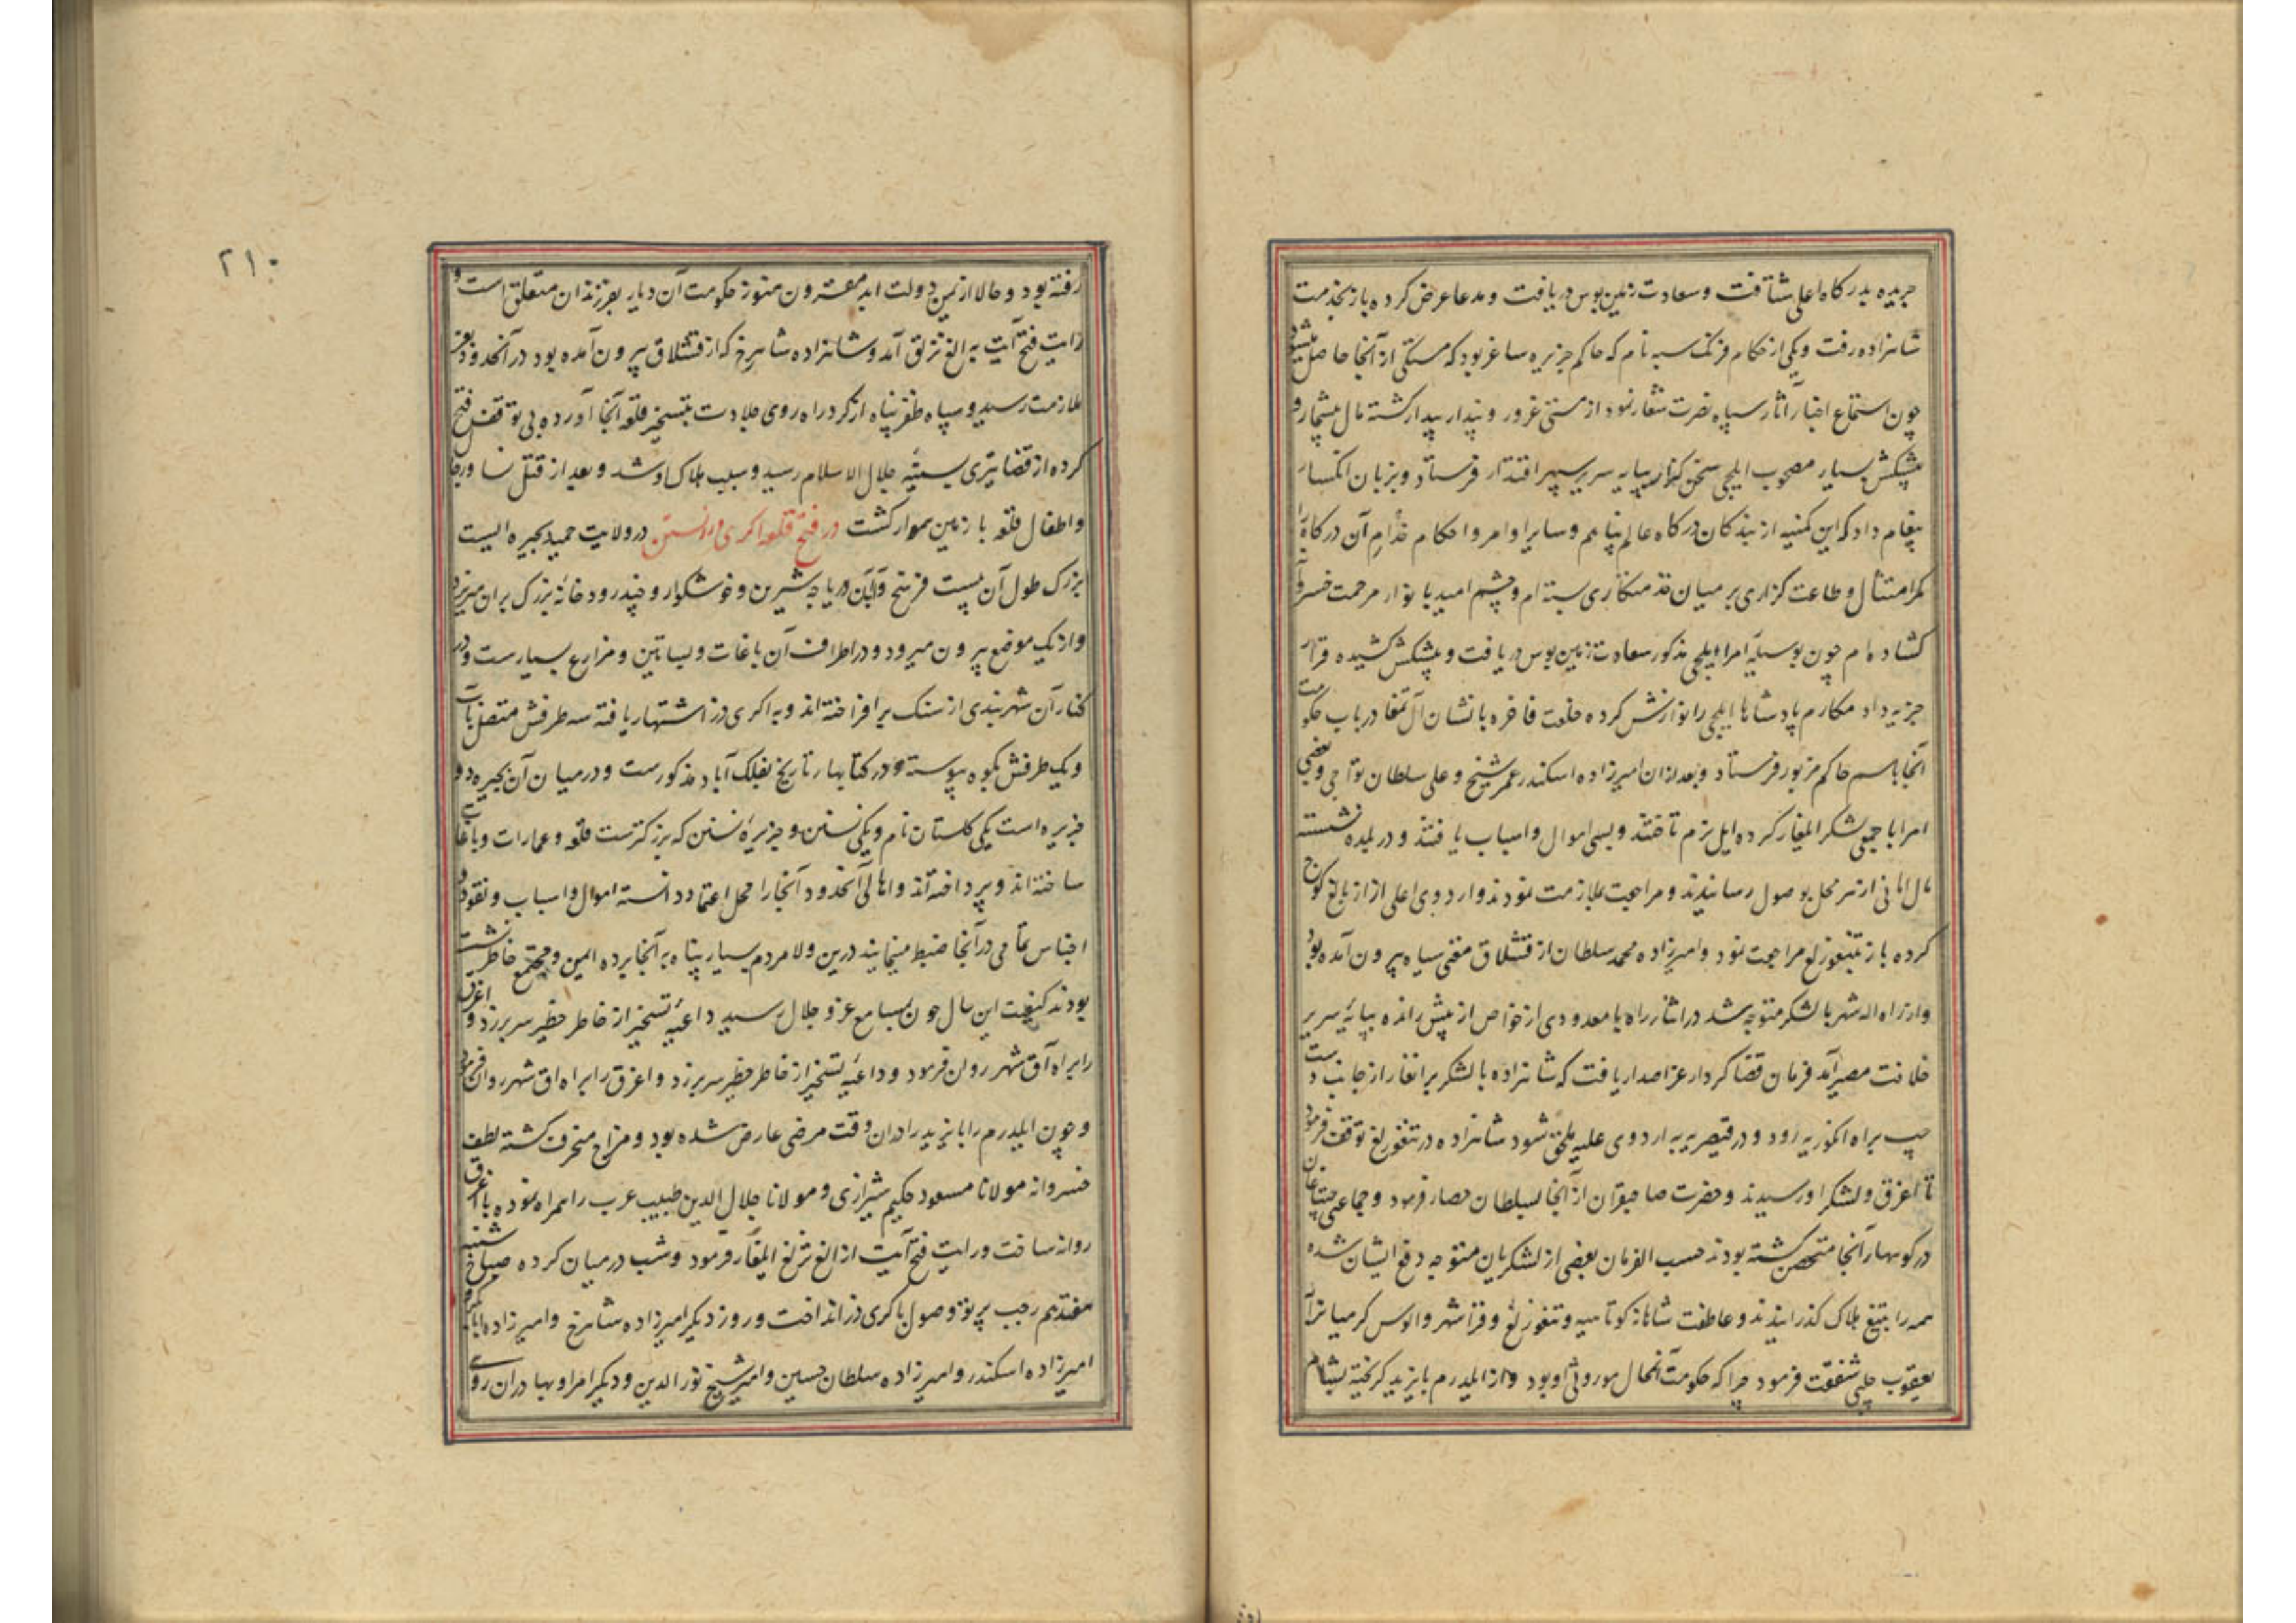 جریده بدرکاه اعلی شتافت و سعادت زمین بوس دریافت و مدعا عرض کرده باز بخدمت
شاهزاده رفت و یکی از حکام فرنک سبه نام که حاکم جزیره ساغز بود که مستکی از آنجا حاصل میشود
چون استماع اخبار آثار سپاه نصرت شعار نمود از مستی غرور و پندار بیدار کشته مال بیشمار و
پیشکش بسیار مصحوب ایلچی سخن کزار بپایه سریر سپهر اقتدار فرستاد و بزبان انکسار
پیغام داد که این کمنیه از بندکان درکاه عالم پناهم و سایر اوامر و احکام خدام آن درکاه را
کمر امتثال و طاعت کزاری بر میان خدمتکاری بسته ام و چشم امید با نوار مرحمت خسروانه
کشاده ام چون بوسیله امرا ایلچی مذکور سعادت زمین بوس دریافت و پیشکش کشیده قرار
جزیه داد مکارم پادشاها ایلچی را نوازش کرده خلعت فاخره با نشان آل تمغا در باب حکومت
آنجا باسم حاکم مزبور فرستاد و بعد ازان امیرزاده اسکندر عمر شیخ و علی سلطان تواجی و بعضی
امرا با جمعی لشکر ایلغار کرده ایل بزم تاختند و بسی اموال و اسباب یافتند و در بلده نشسته
مال امانی از سر محل بوصول رسانیدند و مراجعت بملازمت نمودند و اردوی اعلی از ازبالغ کوچ
کرده باز بتنغوزلغ مراجعت نمود و امیرزاده محمد سلطان از قشلاق مغنی سیاه بیرون آمده بود
و از راه اله شهر با لشکر متوجه شد در اثنا راه با معدودی از خواص از پیش رانده بپایه سریر
خلافت مصیر آمد فرمان قضا کردار عز اصدار یافت که شاهزاده با لشکر برانغار از جانب دست
چپ براه انکوریه رود و در قیصریه به اردوی علیه ملحق شود شاهزاده در تنغوزلغ توقف فرمود
تا اغرق و لشکر او رسیدند و حضرت صاحبقران از آنجا بسلطان حصار فرمود و جماعتی جپنیان
در کوهسار آنجا متحصن کشته بودند حسب الفرمان بعضی از لشکریان متوجه دفع ایشان شده
همه را بتیغ هلاک کذرانیدند و عاطفت شاهانه کوتاهیه و تنغوزلغ و قراشهر و الوس کرمیانرا
یعقوب چلبی شفقت فرمود چرا که حکومت آنمحال موروثی او بود و از ایلدرم بایزید کریخته بشام
رفته بود و حالا از یمن دولت ابد مقترون هنوز حکومت آن دیار بفرزندان متعلق است و
رایت فتح آیت به الغ نزلق آمد و شاهزاده شاهرخ که از قشلاق بیرون آمده بود در آنحدود بعز
ملازمت رسید و سپاه ظفر پناه از کرد راه روی جلادت بتسخیر قلعه آنجا آورده بی توقف فتح
کرده از قضا تیری بسینه جلال الاسلام رسید و سبب هلاک او شد و بعد از قتل نسا و رجال
و اطفال قلعه با زمین هموار کشت در فتح قلعه اکری در و نستن در ولایت حمید بحیره ایست
بزرک طول آن بیست فرسخ و آب آن دریاچه شیرین و خوشکوار و چند رودخانه بزرک بران میریزد
و از یک موضع بیرون میرود و در اطراف آن باغات و بساتین و مزارع بسیارست و در
کنار آن شهربندی از سنک برافراخته اند و به اکری در اشتهار یافته سه طرفش متصل باب
و یک طرفش بکوه پیوسته و در کتابهار تاریخ بفلک آباد مذکورست و در میان آن بحیره دو
جزیره است یکی کلستان نام و یکی نستن و جزیره نستن که بزرکترست قلعه و عمارات و باغات
ساخته اند و پرداخته اند و اهالی آنحدود آنجا را محل اعتماد دانسته اموال و اسباب و نقود و
اجناس تمامی در آنجا ضبط مینمایند درین ولا مردم بسیار پناه به آنجا برده ایمن و مجتمع خاطر نشسته
بودند کیفیت این حال چون بمسامع عز و جلال رسید داعیه تسخیر از خاطر خطیر سر برزد و اغرق
را براه آق شهر روان فرمود و داعیه تسخیر از خاطر خطیر سر برزد و اغرق را براه اق شهر روان فرمود
و چون ایلدرم را بایزید را دران وقت مرضی عارض شده بود و مزاج منحرف کشته لطف
خسروانه مولانا مسعود حکیم شیرازی و مولانا جلال الدین طبیب عرب را همراه نموده با اغرق
روانه ساخت و رایت فتح آیت از الغ نزلغ ایلغار فرمود و شب درمیان کرده صباح شنبه
هفدهم رجب پرتو وصول باکری در انداخت و روز دیکر امیرزاده شاهرخ و امیرزاده ابابکر و
امیرزاده اسکندر و امیرزاده سلطان حسین و امیر شیخ نور الدین و دیکر امرا و بهادران روی
۲۱۰